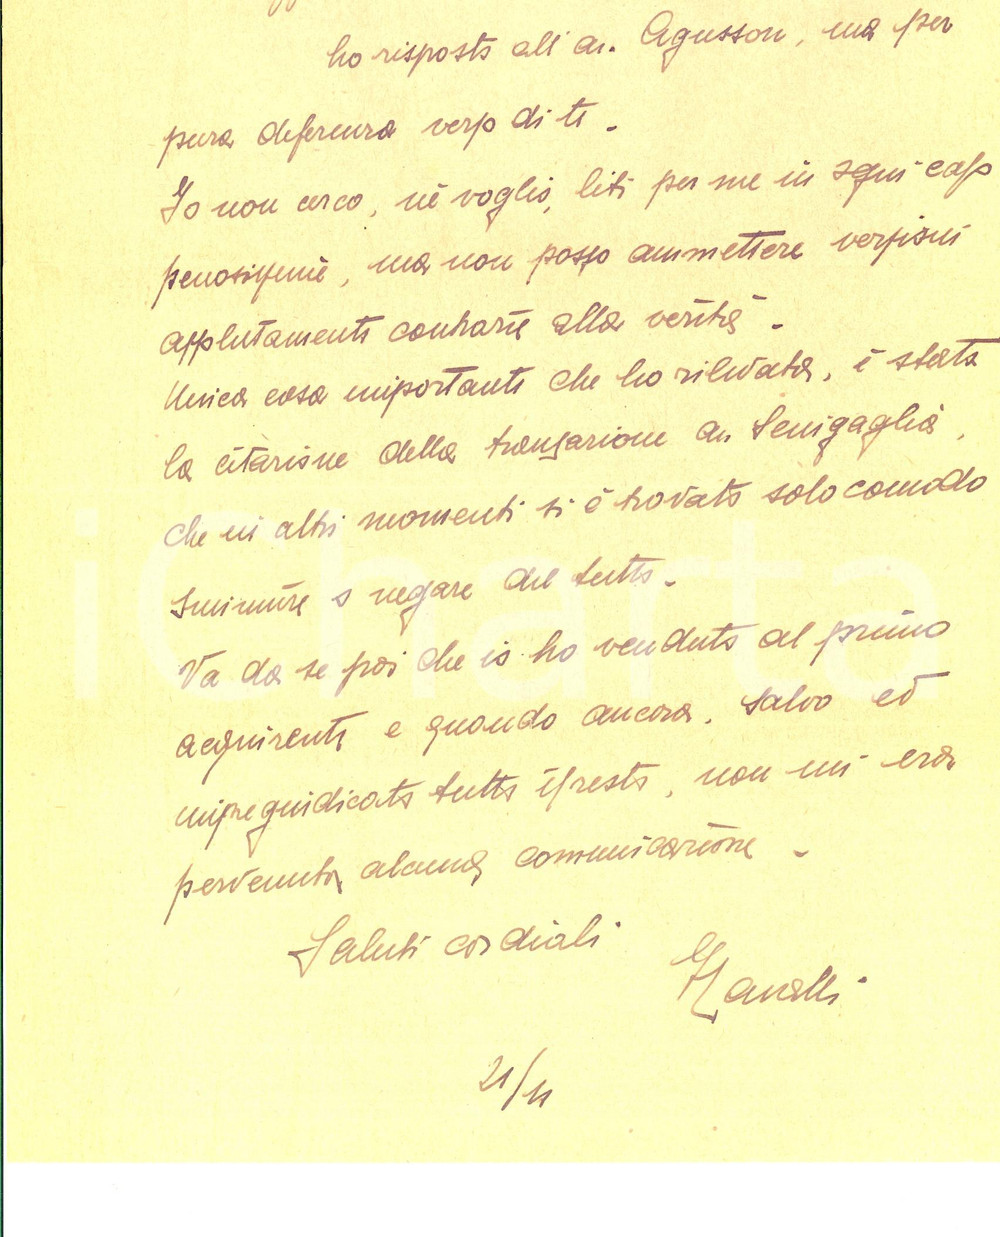 ho risposto all'av. Agusson, ma per
pura deferenza verso di te.
Io non cerco, nè voglio, liti per me in ogni caso
penosissime, ma non posso ammettere versioni
assolutamente contrarie alla verità.
Unica cosa importante che ho rilevata, è stata
la citazione della transazione av. Senigaglia,
che in altri momenti si è trovato solo comodo
sminuire o negare del tutto.
Va da se poi che io ho venduto al primo
acquirente e quando ancora, salvo ed
impregiudicato tutto il resto, non mi era
pervenuta alcuna comunicazione -
Saluti cordiali
21/11
iCharta